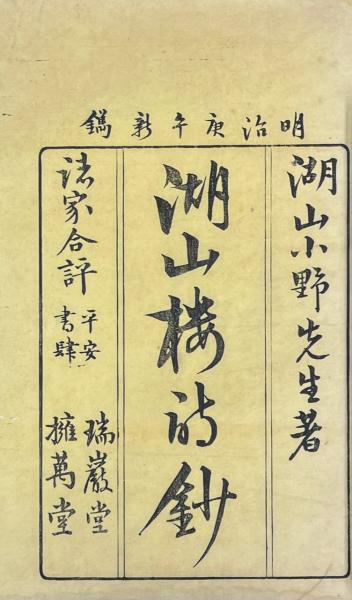 明治庚午新鐫
湖山小野先生著
湖山楼詩鈔
諸家合評
平安
書肆
瑞巖堂
擁萬堂